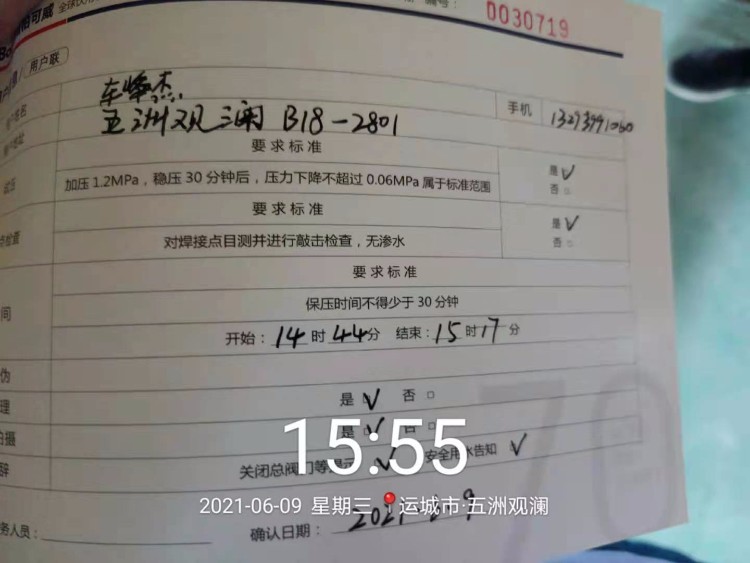 编号： 0030719
用户联
车峰杰 手机
五洲观澜 B18-2801
要求标准
加压1.2MPa，稳压30分钟后，压力下降不超过0.06MPa属于标准范围 是 ✓ 否 □
要求标准
对焊接点目测并进行敲击检查，无渗水 是 ✓ 否 □
要求标准
间 保压时间不得少于30分钟
开始：14时44分 结束：15时17分
伪
理 是 ✓ 否 □
拍摄 是 ✓ 否 □
辞 关闭总阀门等提示 ✓ 安全用水告知 ✓
15:55
2021-06-09 星期三 运城市·五洲观澜
务人员： 确认日期：2021